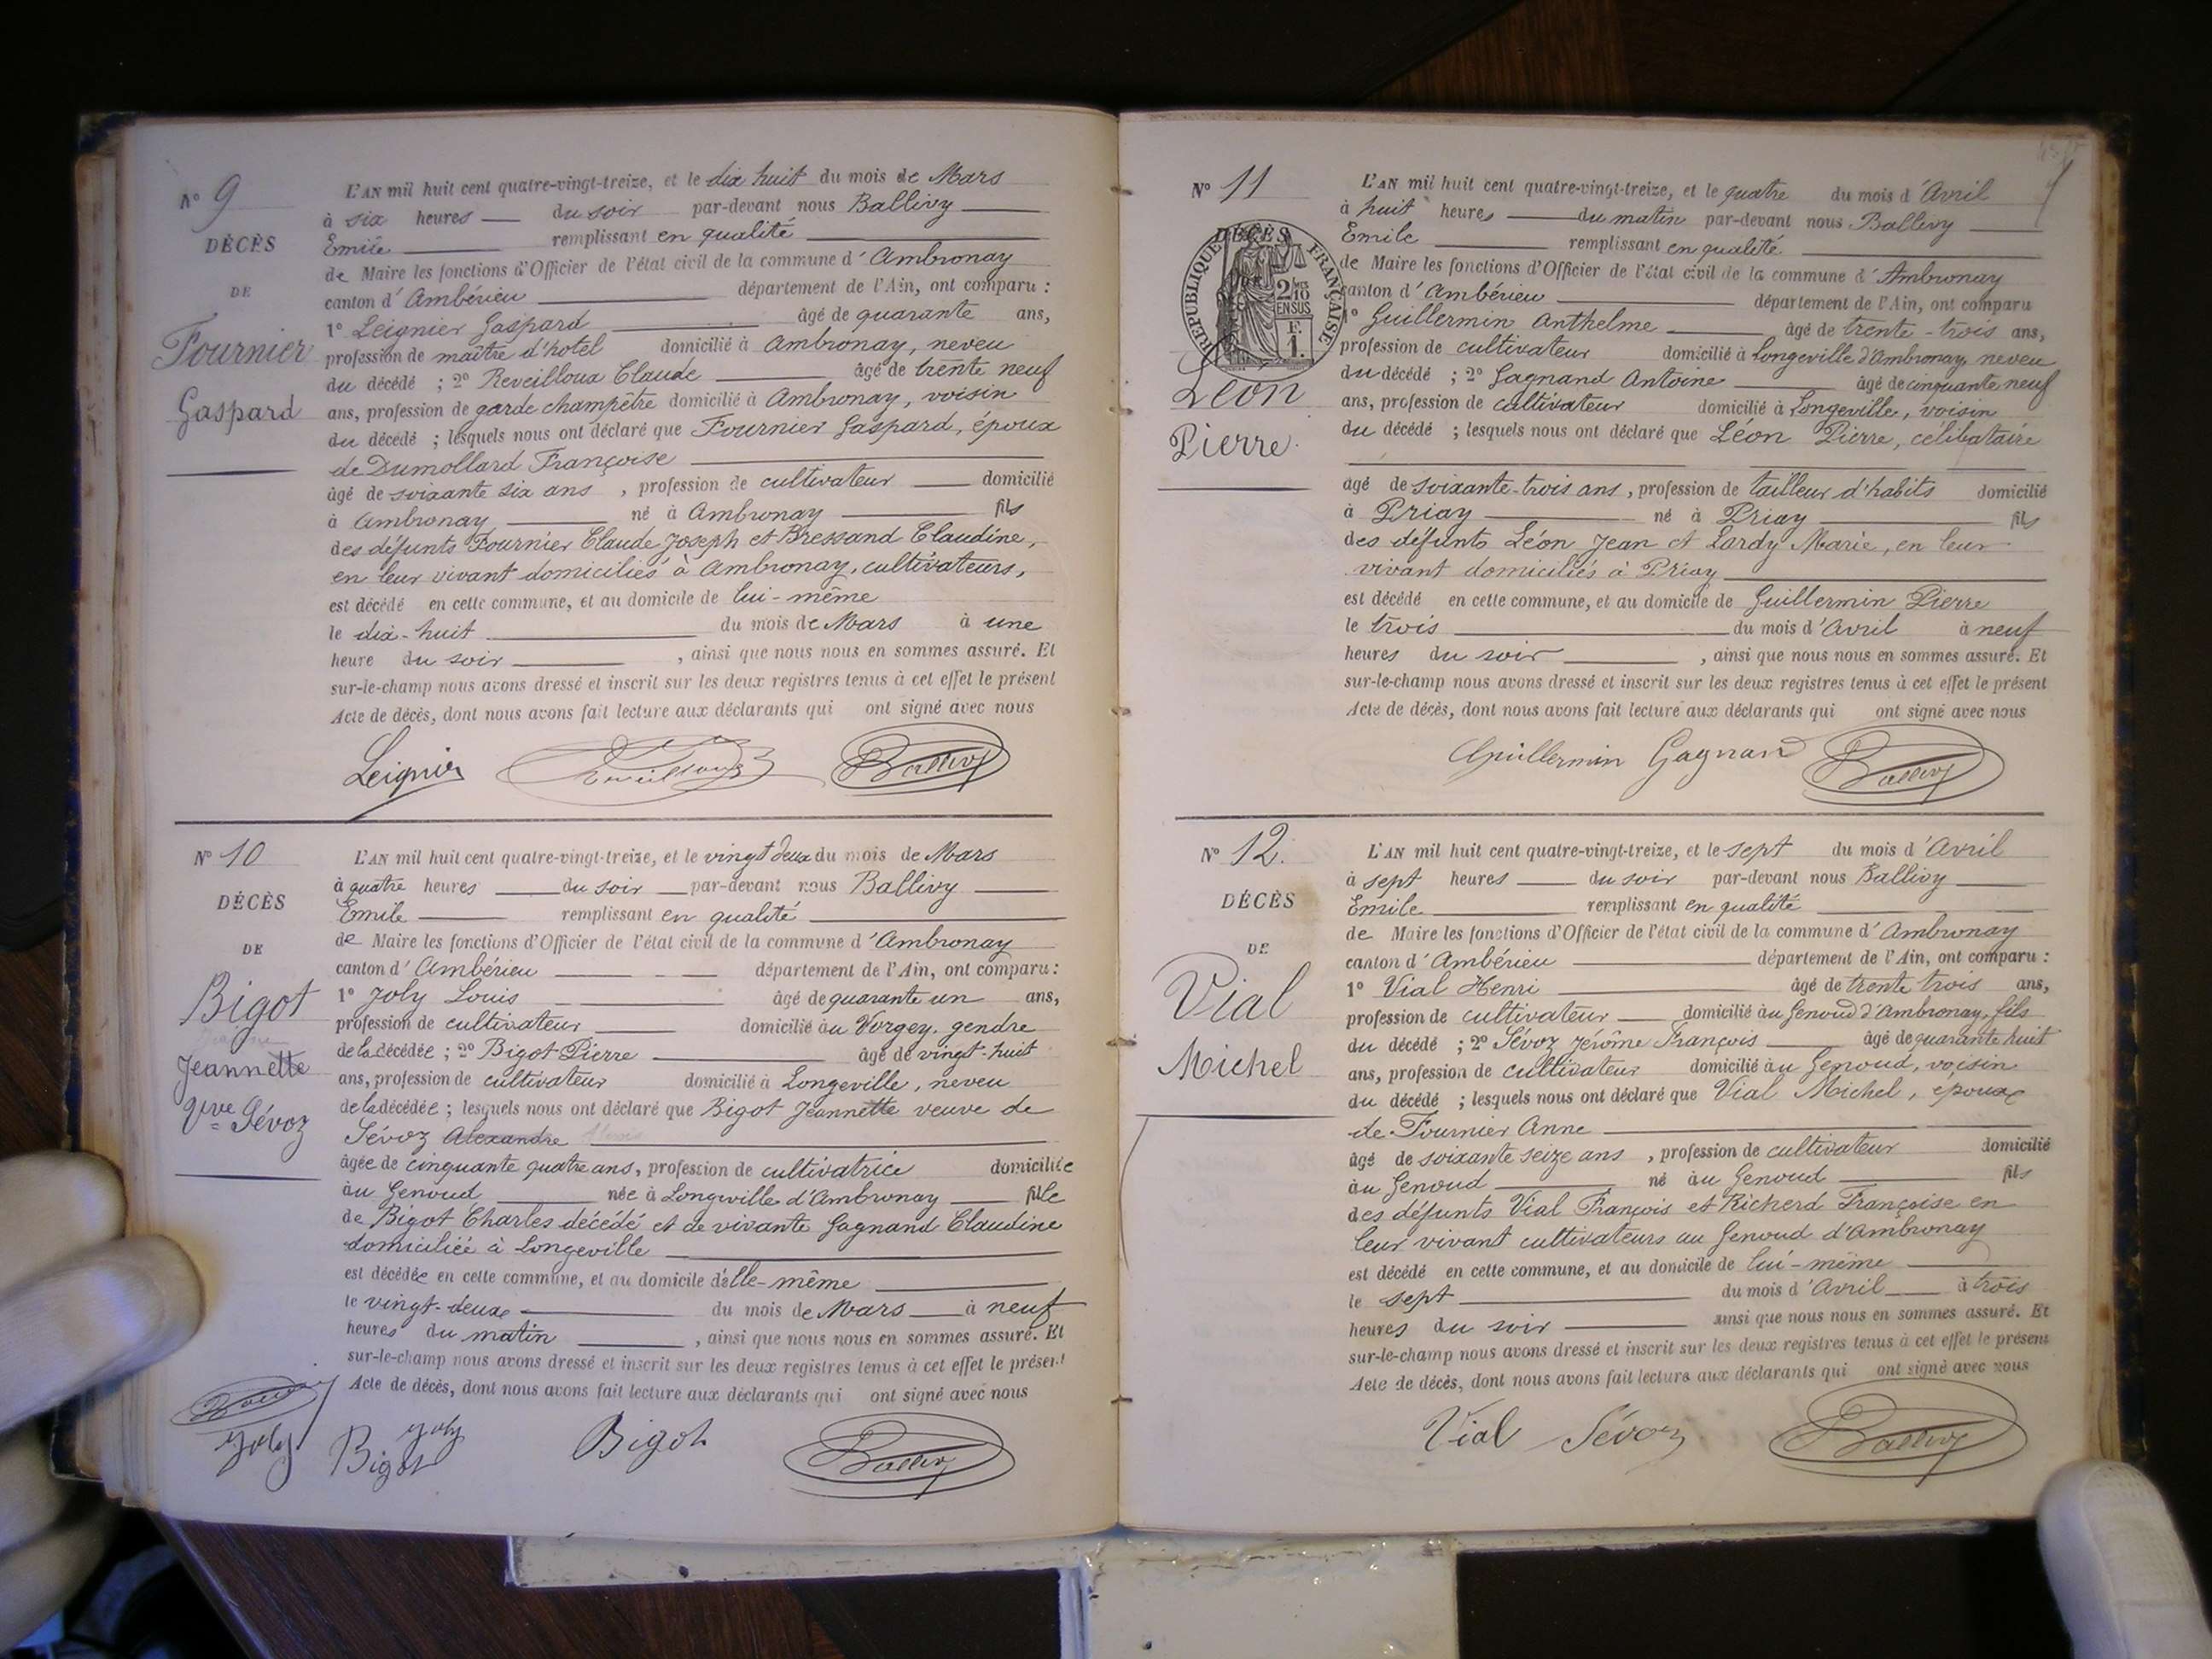 N° 9
DÉCÈS
DE
Fournier
Gaspard
L'AN mil huit cent quatre-vingt-treize, et le dix huit du mois de Mars
à six heures — du soir par-devant nous Ballivy
Emile remplissant en qualité
de Maire les fonctions d'Officier de l'état civil de la commune d'Ambronay
canton d'Ambérieu département de l'Ain, ont comparu :
1° Leignier Gaspard âgé de quarante ans,
profession de maître d'hôtel domicilié à Ambronay, neveu
du décédé ; 2° Reveilloux Claude âgé de trente neuf
ans, profession de garde champêtre domicilié à Ambronay, voisin
du décédé ; lesquels nous ont déclaré que Fournier Gaspard, époux
de Dumollard Françoise
âgé de soixante six ans , profession de cultivateur domicilié
à Ambronay né à Ambronay fils
des défunts Fournier Claude Joseph et Bressand Claudine,
en leur vivant domiciliés à Ambronay, cultivateurs,
est décédé en cette commune, et au domicile de lui-même
le dix-huit du mois de Mars à une
heure du soir , ainsi que nous nous en sommes assuré. Et
sur-le-champ nous avons dressé et inscrit sur les deux registres tenus à cet effet le présent
Acte de décès, dont nous avons fait lecture aux déclarants qui ont signé avec nous
Leignier Reveilloux Ballivy
N° 10
DÉCÈS
DE
Bigot
Jeannette
Vve Sévoz
L'AN mil huit cent quatre-vingt-treize, et le vingt deux du mois de Mars
à quatre heures — du soir — par-devant nous Ballivy
Emile remplissant en qualité
de Maire les fonctions d'Officier de l'état civil de la commune d'Ambronay
canton d'Ambérieu département de l'Ain, ont comparu :
1° Joly Louis âgé de quarante un ans,
profession de cultivateur domicilié au Vorgey, gendre
de la décédée ; 2° Bigot Pierre âgé de vingt-huit
ans, profession de cultivateur domicilié à Longeville, neveu
de la décédée ; lesquels nous ont déclaré que Bigot Jeannette veuve de
Sévoz Alexandre
âgée de cinquante quatre ans, profession de cultivatrice domiciliée
au Genoud née à Longeville d'Ambronay fille
de Bigot Charles décédé et de vivante Gagnand Claudine
domiciliée à Longeville
est décédée en cette commune, et au domicile d'elle-même
le vingt-deux du mois de Mars à neuf
heures du matin , ainsi que nous nous en sommes assuré. Et
sur-le-champ nous avons dressé et inscrit sur les deux registres tenus à cet effet le présent
Acte de décès, dont nous avons fait lecture aux déclarants qui ont signé avec nous
Ballivy
Joly Bigot Joly Bigot Ballivy
N° 11
DÉCÈS
RÉPUBLIQUE FRANÇAISE
2/10 EN SUS
F.
1.
Léon
Pierre
L'AN mil huit cent quatre-vingt-treize, et le quatre du mois d'Avril
à huit heures — du matin par-devant nous Ballivy
Emile remplissant en qualité
de Maire les fonctions d'Officier de l'état civil de la commune d'Ambronay
canton d'Ambérieu département de l'Ain, ont comparu
1° Guillermin Anthelme âgé de trente-trois ans,
profession de cultivateur domicilié à Longeville d'Ambronay, neveu
du décédé ; 2° Gagnand Antoine âgé de cinquante neuf
ans, profession de cultivateur domicilié à Longeville, voisin
du décédé ; lesquels nous ont déclaré que Léon Pierre, célibataire
âgé de soixante-trois ans, profession de tailleur d'habits domicilié
à Priay né à Priay fils
des défunts Léon Jean et Lardy Marie, en leur
vivant domiciliés à Priay
est décédé en cette commune, et au domicile de Guillermin Pierre
le trois du mois d'Avril à neuf
heures du soir , ainsi que nous nous en sommes assuré. Et
sur-le-champ nous avons dressé et inscrit sur les deux registres tenus à cet effet le présent
Acte de décès, dont nous avons fait lecture aux déclarants qui ont signé avec nous
Guillermin Gagnand Ballivy
N° 12.
DÉCÈS
DE
Vial
Michel
L'AN mil huit cent quatre-vingt-treize, et le sept du mois d'Avril
à sept heures — du soir par-devant nous Ballivy
Emile remplissant en qualité
de Maire les fonctions d'Officier de l'état civil de la commune d'Ambronay
canton d'Ambérieu département de l'Ain, ont comparu :
1° Vial Henri âgé de trente trois ans,
profession de cultivateur — domicilié au Genoud d'Ambronay, fils
du décédé ; 2° Sévoz Jérôme François âgé de quarante huit
ans, profession de cultivateur domicilié au Genoud, voisin
du décédé ; lesquels nous ont déclaré que Vial Michel, époux
de Fournier Anne
âgé de soixante seize ans , profession de cultivateur domicilié
au Genoud né au Genoud fils
des défunts Vial François et Richerd Françoise en
leur vivant cultivateurs au Genoud d'Ambronay
est décédé en cette commune, et au domicile de lui-même
le sept du mois d'Avril à trois
heures du soir ainsi que nous nous en sommes assuré. Et
sur-le-champ nous avons dressé et inscrit sur les deux registres tenus à cet effet le présent
Acte de décès, dont nous avons fait lecture aux déclarants qui ont signé avec nous
Vial Sévoz Ballivy